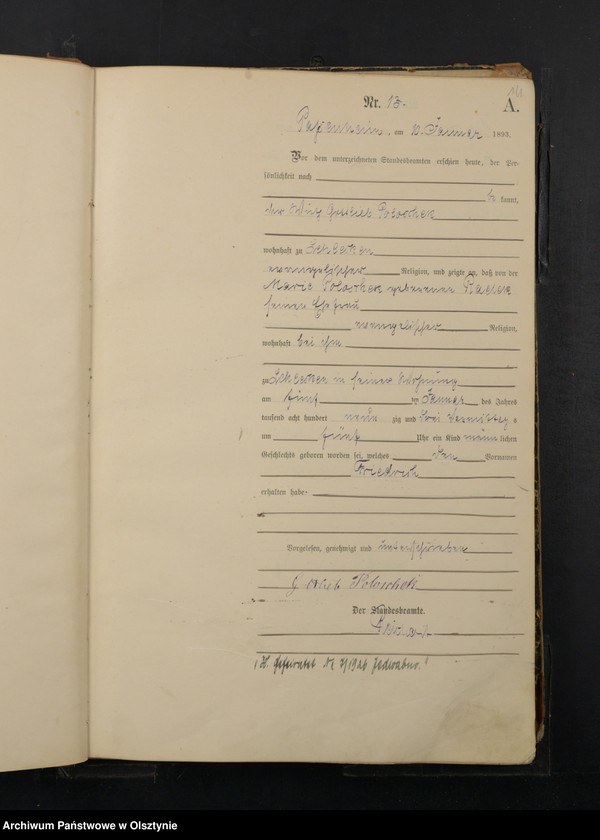 Nr. 13.
A.
am 10. Januar 1893.
Vor dem unterzeichneten Standesbeamten erschien heute, der Per-
sönlichkeit nach
kannt,
der Wirt Gottlieb Poloschek
wohnhaft zu
evangelischer Religion, und zeigte an, daß von der
Marie Poloschek geborenen
seiner Ehefrau
evangelischer Religion,
wohnhaft bei ihm
zu in seiner Wohnung
am fünften Januar des Jahres
tausend acht hundert neun zig und drei Vormittags
um fünf Uhr ein Kind männlichen
Geschlechts geboren worden sei, welches den Vornamen
Friedrich
erhalten habe.
Vorgelesen, genehmigt und unterschrieben
Poloschek
Der Standesbeamte.
Geheiratet Nr 2/1926
Archiwum Państwowe w Olsztynie